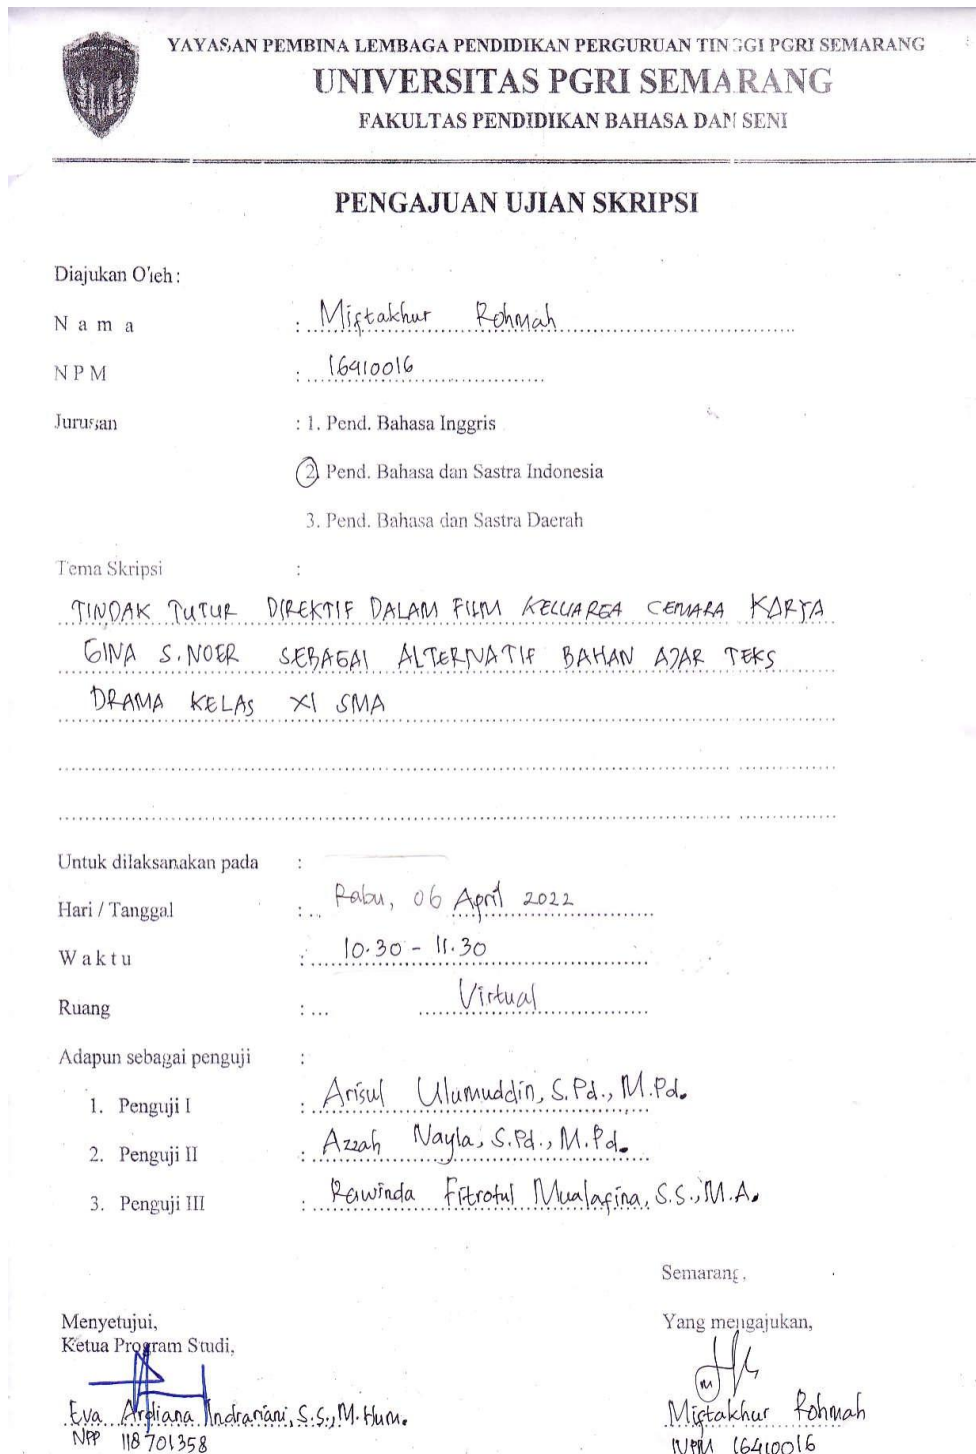 YAYASAN PEMBINA LEMBAGA PENDIDIKAN PERGURUAN TINGGI PGRI SEMARANG
UNIVERSITAS PGRI SEMARANG
FAKULTAS PENDIDIKAN BAHASA DAN SENI
PENGAJUAN UJIAN SKRIPSI
Diajukan Oleh :
N a m a : Miftakhur Rohmah
N P M : 16410016
Jurusan : 1. Pend. Bahasa Inggris
2. Pend. Bahasa dan Sastra Indonesia
3. Pend. Bahasa dan Sastra Daerah
Tema Skripsi :
TINDAK TUTUR DIREKTIF DALAM FILM KELUARGA CEMARA KARYA
GINA S. NOER SEBAGAI ALTERNATIF BAHAN AJAR TEKS
DRAMA KELAS XI SMA
Untuk dilaksanakan pada :
Hari / Tanggal : Rabu, 06 April 2022
W a k t u : 10.30 - 11.30
Ruang : Virtual
Adapun sebagai penguji :
1. Penguji I : Arisul Ulumuddin, S.Pd., M.Pd.
2. Penguji II : Azzah Nayla, S.Pd., M.Pd.
3. Penguji III : Rawinda Fitrotul Mualafina, S.S., M.A.
Semarang,
Menyetujui, Yang mengajukan,
Ketua Program Studi,
Eva Ardiana Indrariani, S.S., M.Hum. Miftakhur Rohmah
NPP 118701358 NPM 16410016